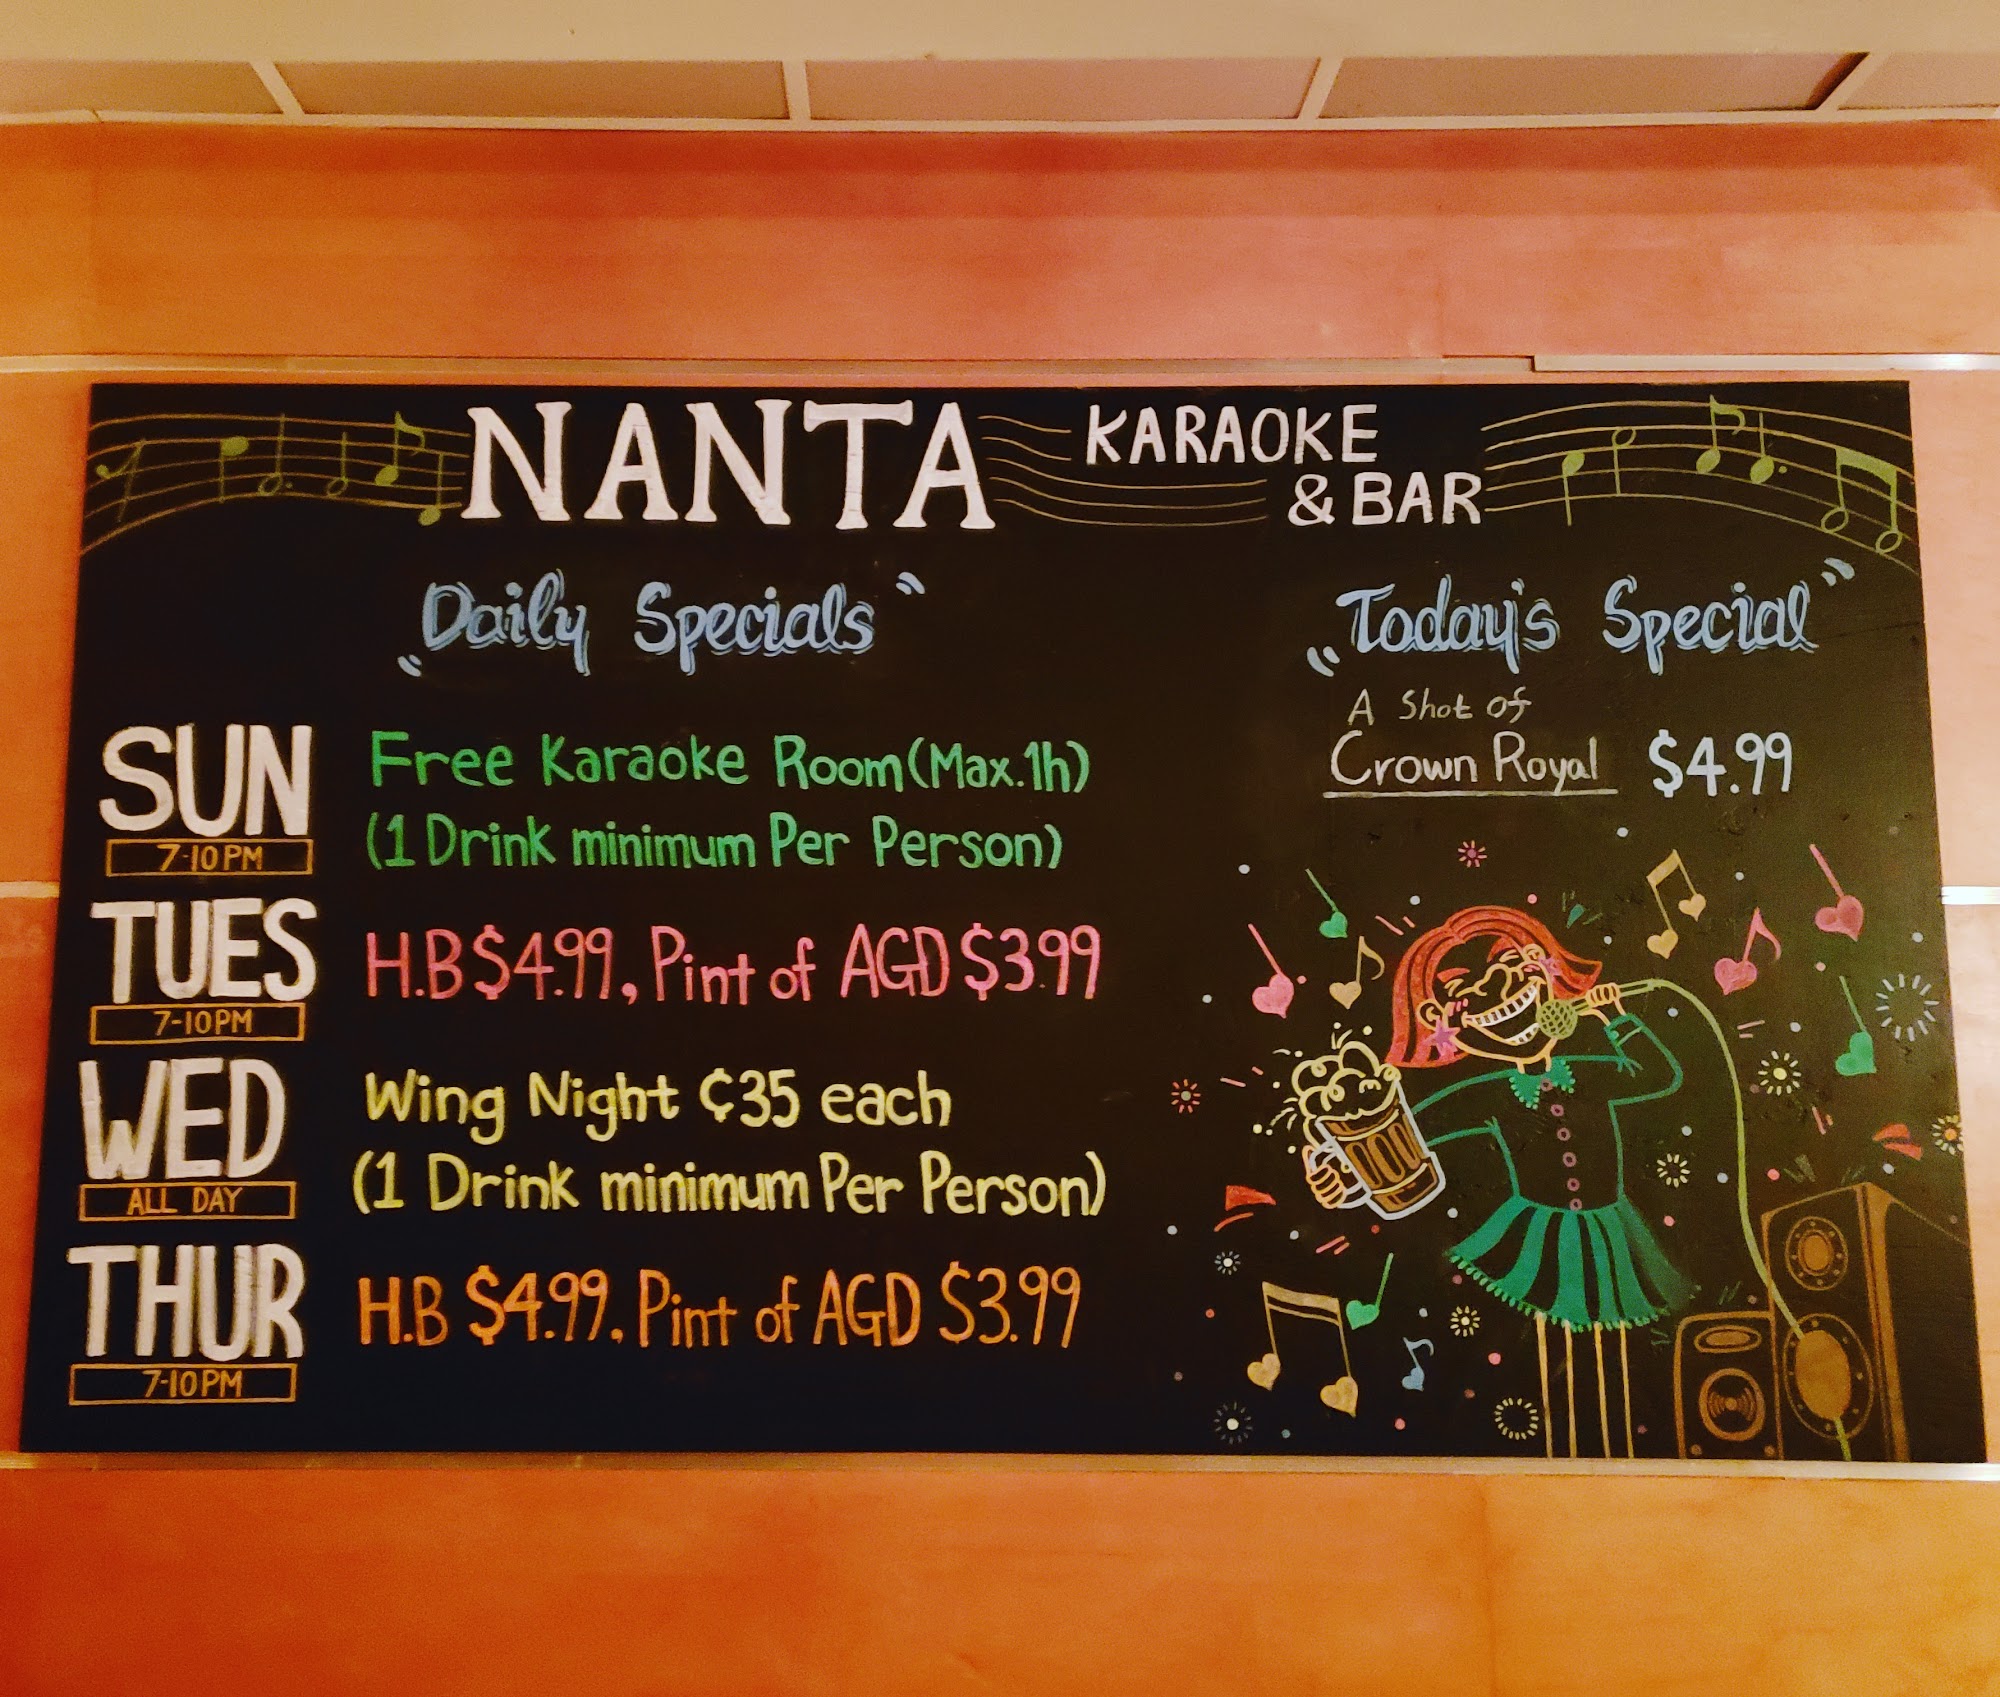 NANTA KARAOKE
& BAR
"Daily Specials"
SUN
7-10PM
Free Karaoke Room (Max.1h)
(1 Drink minimum Per Person)
TUES
7-10PM
H.B $4.99, Pint of AGD $3.99
WED
ALL DAY
Wing Night ¢35 each
(1 Drink minimum Per Person)
THUR
7-10PM
H.B $4.99, Pint of AGD $3.99
"Today's Special"
A Shot of
Crown Royal $4.99